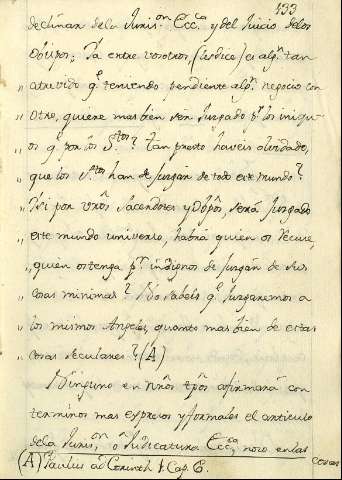 133
declinar de la Juris.on Ecc.ca y del Juicio de los
Obispos; Ya entre vosotros, (les dice) ei alg.n tan
„ atrevido q.e teniendo pendiente alg.n negocio con
„ otro, quiere mas bien ser Juzgado p.r los iniqu-
„ os q.e por los S.tos? tan presto haveis olvidado,
„ que los S.tos han de Juzgar de todo este mundo?
„ Y si por vros Sacerdotes y Obpos, será Juzgado
„ este mundo universo, habrá quien os recuse,
„ quien os tenga p.r indignos de Juzgar de sus
„ cosas minimas? No sabeis q.e Juzgaremos a
„ los mismos Angeles, quanto mas bien de estas
„ cosas seculares? (A)
Ninguno en nros tpos afirmará con
terminos mas expresos y formales el articulo
de la Juris.on o Judicatura Ecc.ca, no so en las
cosas
(A) Paulus ad Corinth 1. Cap. 6.